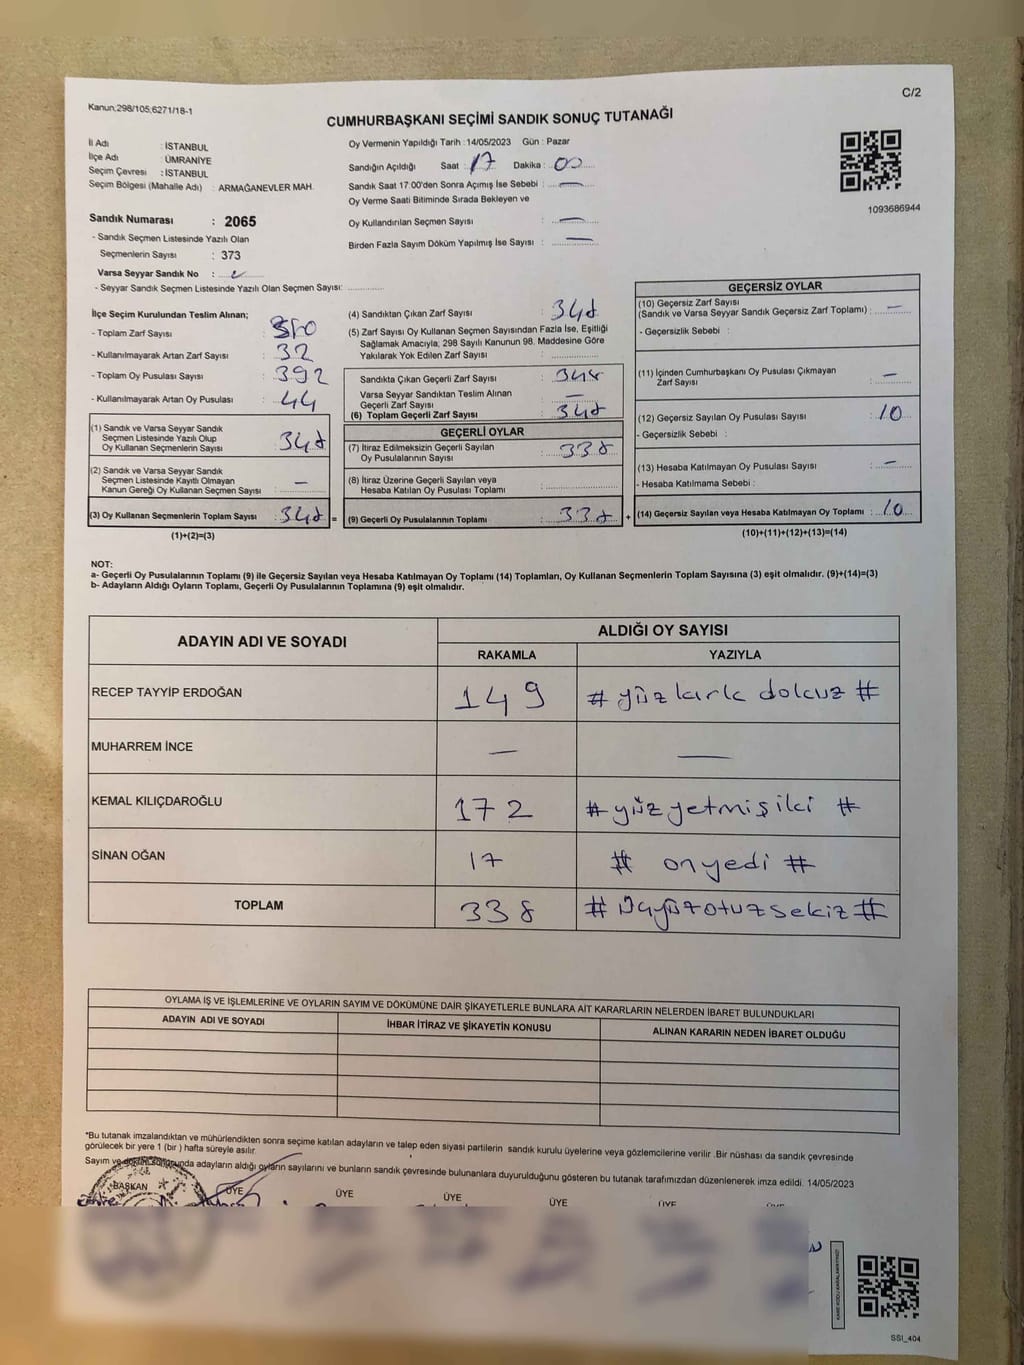 Kanun;298/105;6271/18-1
C/2
CUMHURBAŞKANI SEÇİMİ SANDIK SONUÇ TUTANAĞI
İl Adı : İSTANBUL
İlçe Adı : ÜMRANİYE
Seçim Çevresi : İSTANBUL
Seçim Bölgesi (Mahalle Adı) : ARMAĞANEVLER MAH.
Oy Vermenin Yapıldığı Tarih :14/05/2023 Gün : Pazar
Sandığın Açıldığı Saat : 17 Dakika : 00
Sandık Saat 17:00'den Sonra Açımış İse Sebebi : —
Oy Verme Saati Bitiminde Sırada Bekleyen ve
Oy Kullandırılan Seçmen Sayısı : —
Birden Fazla Sayım Döküm Yapılmış İse Sayısı : —
1093686944
Sandık Numarası : 2065
- Sandık Seçmen Listesinde Yazılı Olan
Seçmenlerin Sayısı : 373
Varsa Seyyar Sandık No :
- Seyyar Sandık Seçmen Listesinde Yazılı Olan Seçmen Sayısı:
İlçe Seçim Kurulundan Teslim Alınan;
- Toplam Zarf Sayısı :
- Kullanılmayarak Artan Zarf Sayısı : 32
- Toplam Oy Pusulası Sayısı : 392
- Kullanılmayarak Artan Oy Pusulası : 44
(1) Sandık ve Varsa Seyyar Sandık
Seçmen Listesinde Yazılı Olup
Oy Kullanan Seçmenlerin Sayısı : 348
(2) Sandık ve Varsa Seyyar Sandık
Seçmen Listesinde Kayıtlı Olmayan
Kanun Gereği Oy Kullanan Seçmen Sayısı : —
(3) Oy Kullanan Seçmenlerin Toplam Sayısı : 348 =
(1)+(2)=(3)
(4) Sandıktan Çıkan Zarf Sayısı : 348
(5) Zarf Sayısı Oy Kullanan Seçmen Sayısından Fazla İse, Eşitliği
Sağlamak Amacıyla, 298 Sayılı Kanunun 98. Maddesine Göre
Yakılarak Yok Edilen Zarf Sayısı :
Sandıkta Çıkan Geçerli Zarf Sayısı : 348
Varsa Seyyar Sandıktan Teslim Alınan
Geçerli Zarf Sayısı : —
(6) Toplam Geçerli Zarf Sayısı : 348
GEÇERLİ OYLAR
(7) İtiraz Edilmeksizin Geçerli Sayılan
Oy Pusulalarının Sayısı : 338
(8) İtiraz Üzerine Geçerli Sayılan veya
Hesaba Katılan Oy Pusulası Toplamı :
(9) Geçerli Oy Pusulalarının Toplamı : 338 +
GEÇERSİZ OYLAR
(10) Geçersiz Zarf Sayısı
(Sandık ve Varsa Seyyar Sandık Geçersiz Zarf Toplamı) : —
- Geçersizlik Sebebi :
(11) İçinden Cumhurbaşkanı Oy Pusulası Çıkmayan
Zarf Sayısı : —
(12) Geçersiz Sayılan Oy Pusulası Sayısı : 10
- Geçersizlik Sebebi :
(13) Hesaba Katılmayan Oy Pusulası Sayısı : —
- Hesaba Katılmama Sebebi :
(14) Geçersiz Sayılan veya Hesaba Katılmayan Oy Toplamı : 10
(10)+(11)+(12)+(13)=(14)
NOT:
a- Geçerli Oy Pusulalarının Toplamı (9) ile Geçersiz Sayılan veya Hesaba Katılmayan Oy Toplamı (14) Toplamları, Oy Kullanan Seçmenlerin Toplam Sayısına (3) eşit olmalıdır. (9)+(14)=(3)
b- Adayların Aldığı Oyların Toplamı, Geçerli Oy Pusulalarının Toplamına (9) eşit olmalıdır.
ADAYIN ADI VE SOYADI
ALDIĞI OY SAYISI
RAKAMLA YAZIYLA
RECEP TAYYİP ERDOĞAN 149 # yüz kırk dokuz #
MUHARREM İNCE — —
KEMAL KILIÇDAROĞLU 172 # yüz yetmiş iki #
SİNAN OĞAN 17 # on yedi #
TOPLAM 338 # üçyüzotuzsekiz #
OYLAMA İŞ VE İŞLEMLERİNE VE OYLARIN SAYIM VE DÖKÜMÜNE DAİR ŞİKAYETLERLE BUNLARA AİT KARARLARIN NELERDEN İBARET BULUNDUKLARI
ADAYIN ADI VE SOYADI İHBAR İTİRAZ VE ŞİKAYETİN KONUSU ALINAN KARARIN NEDEN İBARET OLDUĞU
*Bu tutanak imzalandıktan ve mühürlendikten sonra seçime katılan adayların ve talep eden siyasi partilerin sandık kurulu üyelerine veya gözlemcilerine verilir .Bir nüshası da sandık çevresinde
görülecek bir yere 1 (bir ) hafta süreyle asılır.
Sayım ve döküm sonucunda adayların aldığı oyların sayılarını ve bunların sandık çevresinde bulunanlara duyurulduğunu gösteren bu tutanak tarafımızdan düzenlenerek imza edildi. 14/05/2023
BAŞKAN ÜYE ÜYE ÜYE ÜYE ÜYE
SSİ_404